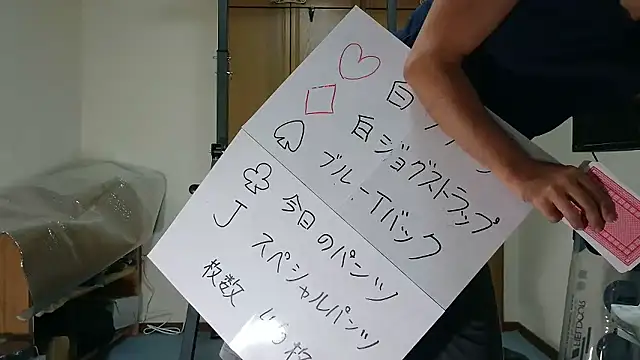 ♡ 白
◇ 白ジョグストラップ
♤ ブルーTバック
♧ 今日のパンツ
J スペシャルパンツ
枚数